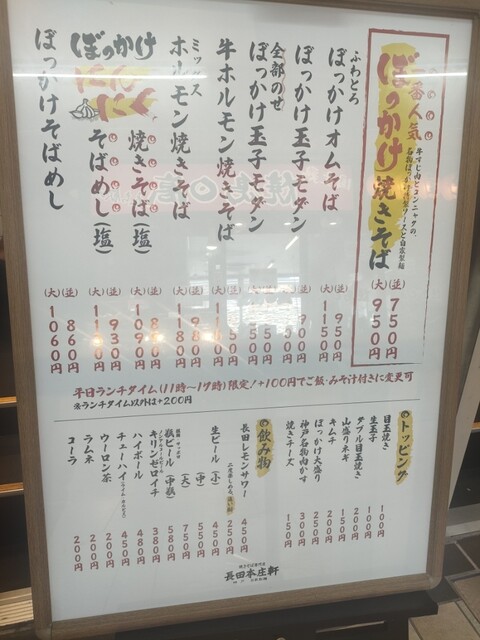 一番人気
ぼっかけ焼きそば
牛すじ肉とコンニャクの、
(並) 750円
(大) 950円
ふわとろ
ぼっかけオムそば
(並) 950円
(大) 1150円
ぼっかけ玉子モダン
全部のせ
ぼっかけ玉子モダン
牛ホルモン焼きそば
ミックス
ホルモン焼きそば
(並) 980円
(大) 1180円
ぼっかけ
にんにく
焼きそば(塩)
そばめし(塩)
(並) 930円
ぼっかけそばめし
(並) 860円
(大) 1060円
平日ランチタイム(11時〜17時)限定!+100円でご飯・みそ汁付きに変更可
※ランチタイム以外は+200円
トッピング
目玉焼き 100円
生玉子 100円
ダブル目玉焼き 200円
山盛りネギ 150円
キムチ 200円
ぼっかけ大盛り 250円
神戸名物肉かす 300円
焼きチーズ 150円
飲み物
長田レモンサワー 450円
250円
生ビール(小) 450円
(中) 550円
(大) 750円
瓶ビール(中瓶) 580円
キリンゼロイチ 380円
ハイボール 480円
チューハイ 450円
ウーロン茶 200円
ラムネ 200円
コーラ 200円
長田本庄軒